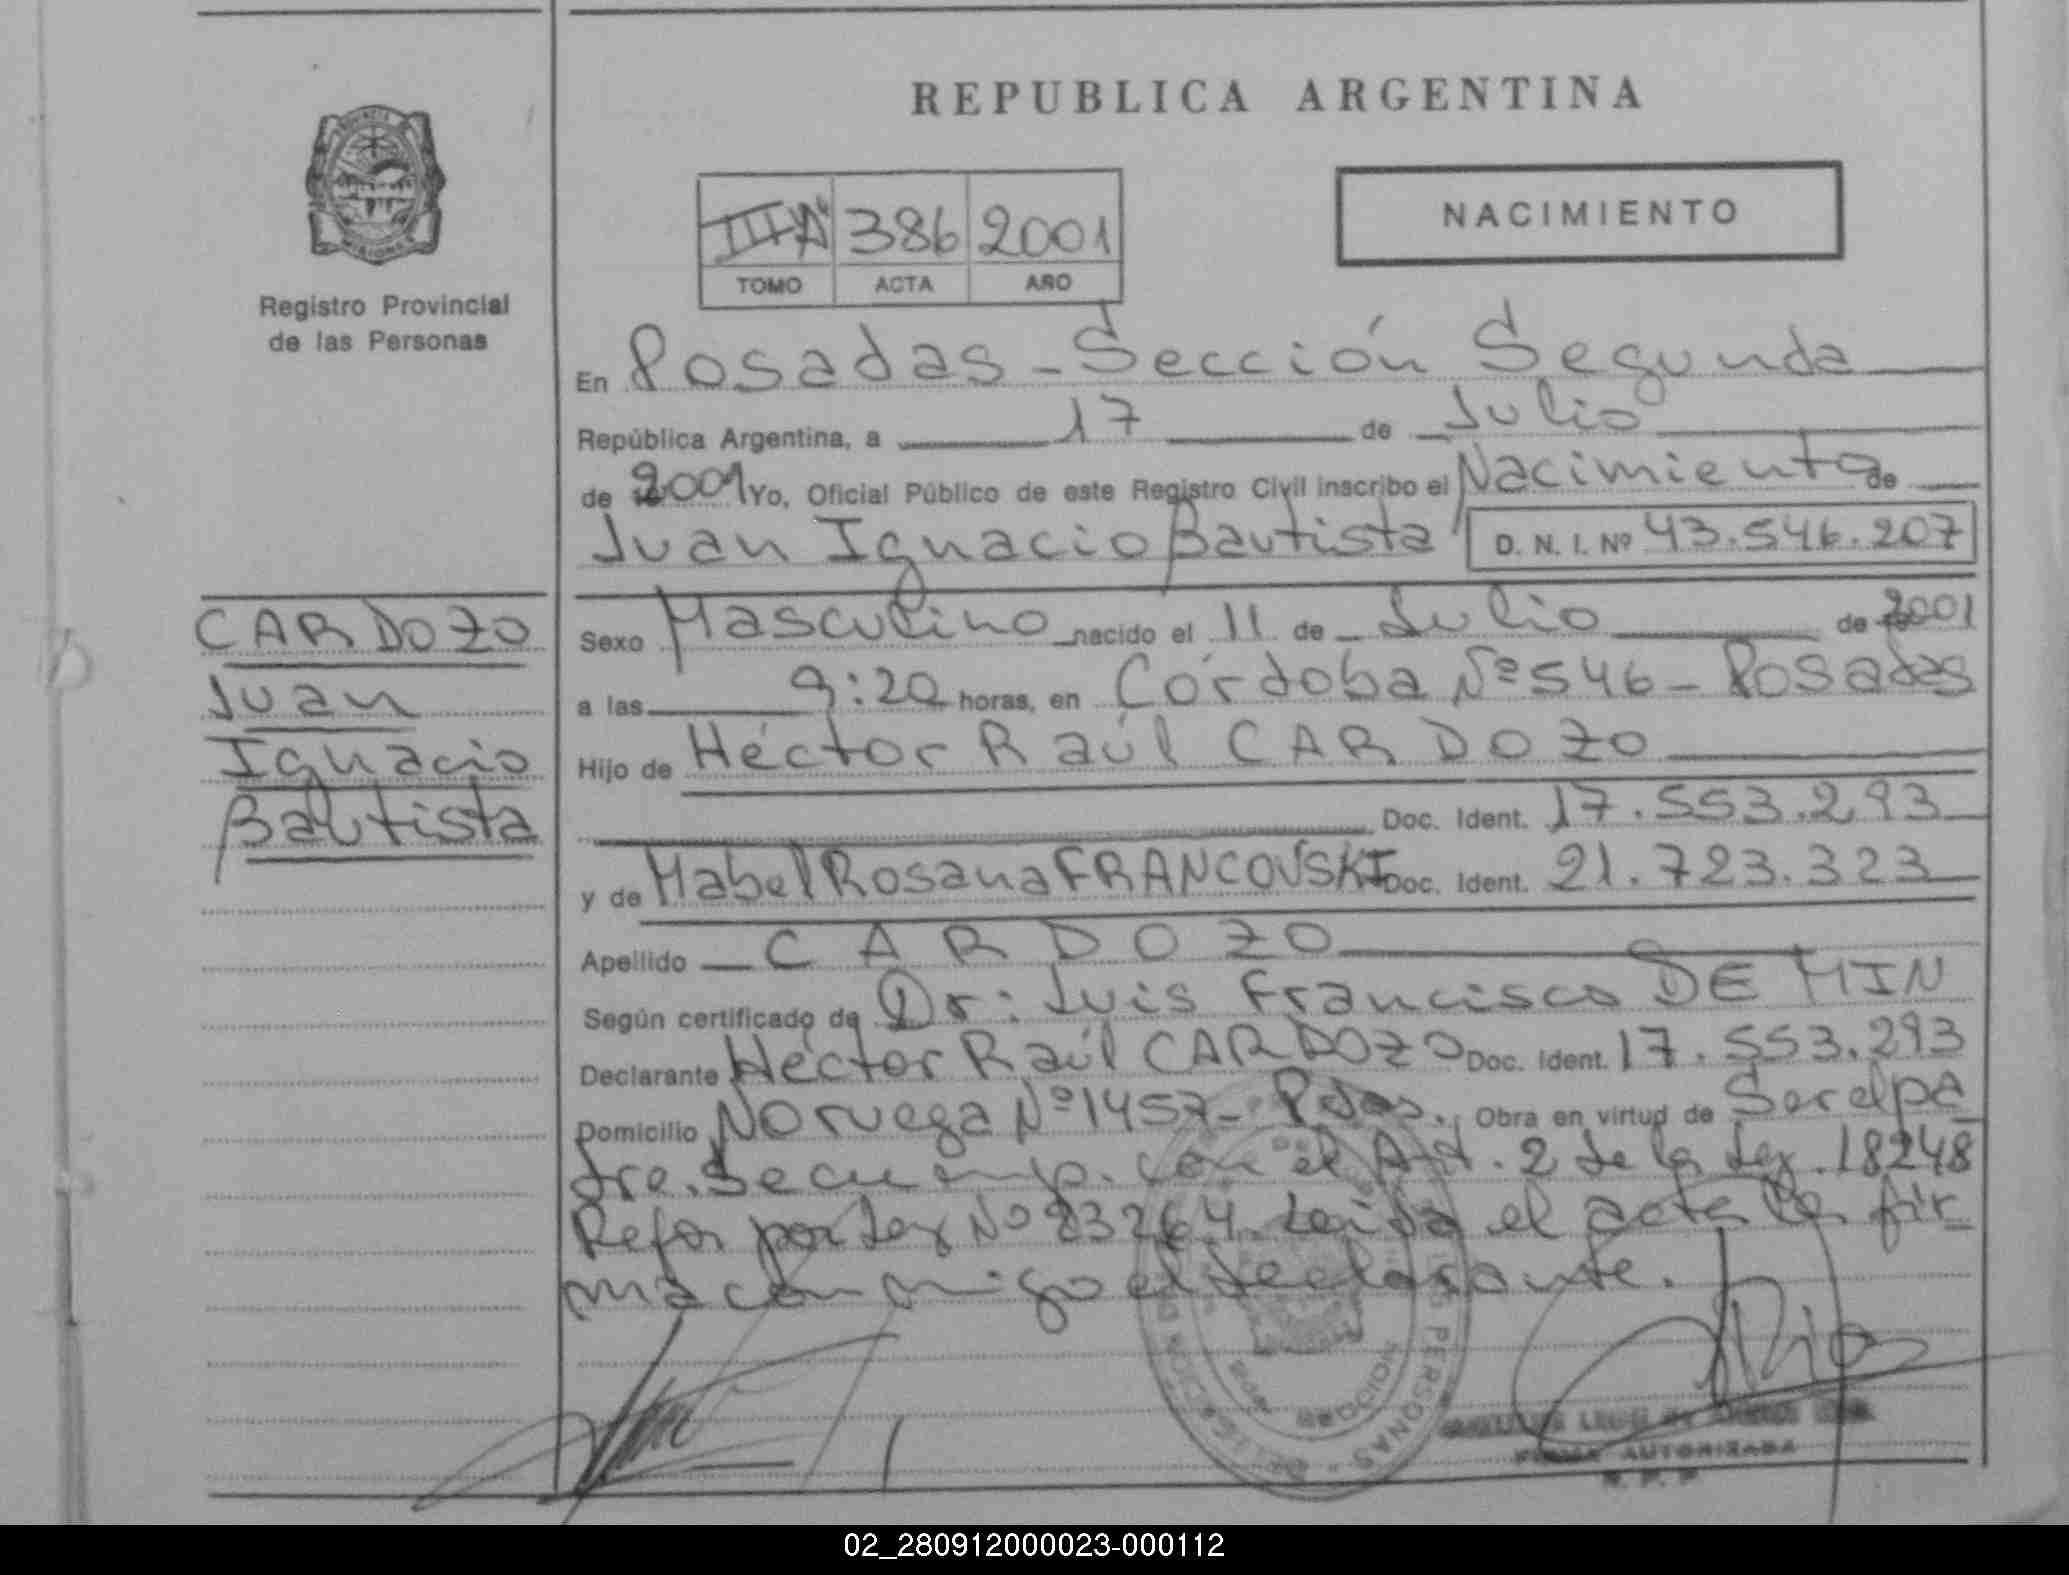 REPUBLICA ARGENTINA
NACIMIENTO
386 2001
TOMO ACTA AÑO
PROVINCIA
MISIONES
Registro Provincial
de las Personas
En Posadas - Sección Segunda
República Argentina, a 17 de Julio
de 2001 Yo, Oficial Público de este Registro Civil inscribo el Nacimiento de
Juan Ignacio Bautista D. N. I. Nº 43.546.207
CARDOZO
Juan
Ignacio
Bautista
Sexo Masculino nacido el 11 de Julio de 2001
a las 9:20 horas, en Córdoba Nº 546 - Posadas
Hijo de Héctor Raúl CARDOZO
Doc. Ident. 17.553.293
y de Mabel Rosana FRANCOVSKI Doc. Ident. 21.723.323
Apellido CARDOZO
Según certificado de Dr: Luis Francisco DE MIN
Declarante Héctor Raúl CARDOZO Doc. Ident. 17.553.293
Domicilio Noruega Nº 1457 - Pdas. Obra en virtud de Ser el pa
dre. Se cump. con el Art. 2 de la Ley. 18248
Refor por Ley Nº 23264. Leida el acta la fir
ma con migo el declarante.
PERSONAS
FIRMA AUTORIZADA
R. P. P.
02_280912000023-000112